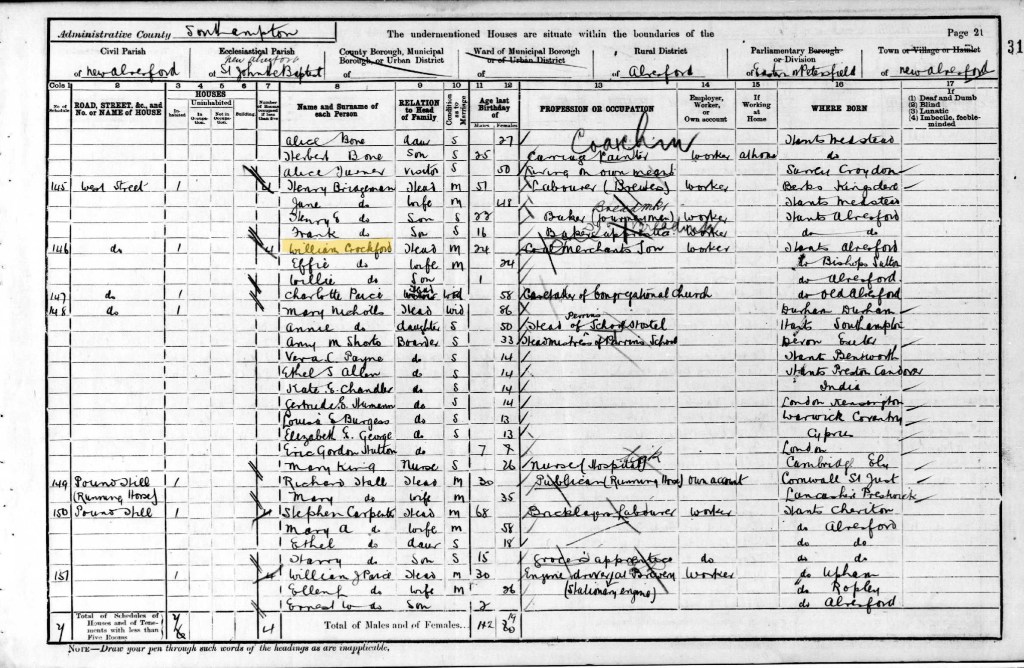 Administrative County Southampton The undermentioned Houses are situate within the boundaries of the Page 21
31
Civil Parish Ecclesiastical Parish County Borough, Municipal Borough, or Urban District Ward of Municipal Borough or of Urban District Rural District Parliamentary Borough or Division Town or Village or Hamlet
of New Alresford of St John the Baptist New Alresford of of of Alresford of of New Alresford
Cols 1 2 3 4 5 6 7 8 9 10 11 12 13 14 15 16 17
No. of Schedule ROAD, STREET, &c., and No. or NAME of HOUSE HOUSES Inhabited Uninhabited In Occupation Not in Occupation Building Name and Surname of each Person RELATION to Head of Family Condition as to Marriage Age last Birthday of Males Females PROFESSION OR OCCUPATION Employer, Worker, or Own account If Working at Home WHERE BORN (1) Deaf and Dumb (2) Blind (3) Lunatic (4) Imbecile, feeble-minded
Alice Bone daur S 27 Hants Medstead
Herbert Bone Son S 25 Carriage Painter worker at home do
Alice Turner Visitor S 50 Living on own means Surrey Croydon
145 West Street 1 4 Henry Bridgeman Head M 51 Labourer (Brewer) worker Berks
Jane do Wife M 48 Hants Medstead
Henry E do Son S 22 Baker (journeyman) worker Hants Alresford
Frank do Son S 16 Baker's apprentice worker do do
146 do 1 4 William Crockford Head M 24 Coal Merchants Son worker Hants Alresford
Effie do Wife M 24 do Bishops Sutton
Willie do Son 1 do Alresford
147 do 1 Charlotte Parce Head Wid 58 Caretaker of Congregational Church do Old Alresford
148 do 1 Mary Nicholls Head Wid 86 Durham Durham
Annie do daughter S 50 Head of School Hostel Perrins Hants Southampton
Amy M Shorto Boarder S 33 Headmistress of Perrins School Devon Exeter
Vera C Payne do S 14 Hants Bentworth
Ethel S Allan do S 14 Hants Preston Candover
Kate E Chandler do S 14 India
Gertrude E do S 14 London Kensington
Louisa E Burgess do S 13 Warwick Coventry
Elizabeth E. George do S 13 Cyprus
Eric Gordon Hutton do 7 London
Mary King Nurse S 26 Nurse (Hospital) Cambridge Ely
149 Pound Hill 1 Richard Hall Head M 30 Publican (Running Horse) own account Cornwall St Just
(Running Horse) Mary do Wife M 35 Lancashire Prestwich
150 Pound Hill 1 4 Stephen Carpenter Head M 68 Bricklayers Labourer worker Hants Cheriton
Mary A do Wife M 58 do Alresford
Ethel do daur S 18 do do
Harry do Son S 15 Grocers apprentice do do do
151 1 4 William J Parce Head M 30 Engine driver (at Brewery) Worker do Upham
Ellen do Wife M 26 (Stationary engine) do Ropley
Ernest W do Son 2 do Alresford
7 Total of Schedules of Houses and of Tenements with less than Five Rooms 4 Total of Males and of Females...
NOTE—Draw your pen through such words of the headings as are inapplicable.